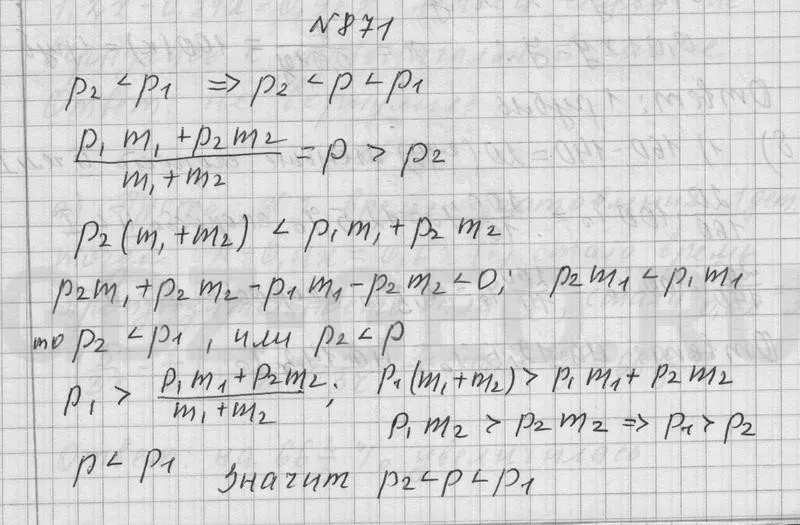 №871
p₂ < p₁ ⇒ p₂ < p < p₁
(p₁m₁ + p₂m₂)/(m₁ + m₂) = p > p₂
p₂(m₁ + m₂) < p₁m₁ + p₂m₂
p₂m₁ + p₂m₂ - p₁m₁ - p₂m₂ < 0; p₂m₁ < p₁m₁
то p₂ < p₁, или p₂ < p
p₁ > (p₁m₁ + p₂m₂)/(m₁ + m₂); p₁(m₁ + m₂) > p₁m₁ + p₂m₂
p₁m₂ > p₂m₂ ⇒ p₁ > p₂
p < p₁ Значит p₂ < p < p₁